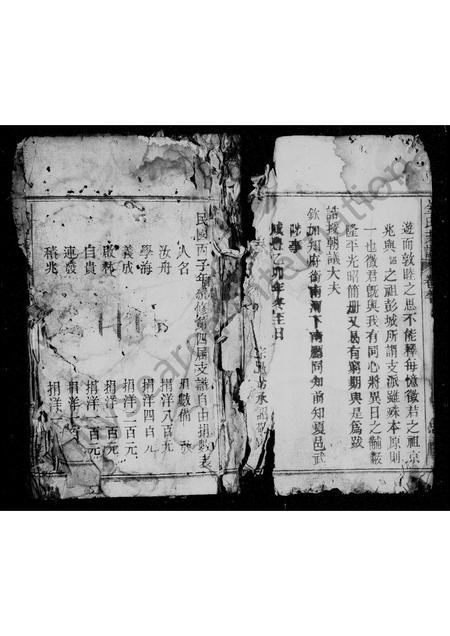 遊而敦睦之思不能釋每憶徵君之祖京
兆與 之祖彭城所謂支派雖殊本原則
一也徵君旣與我有同心將異日之黼黻
隆平光昭簡册又曷有窮期與是爲跋
誥授朝議大夫
欽加知府銜南河下南廳同知前知夏邑武
陟事
咸豐乙卯年冬至日
民國丙子年續修第四屆支譜自由捐數表
人名 捐數備
汝舟 捐洋八百元
學海 捐洋四百元
義成 捐洋二百元
啟林 捐洋一百元
自貴 捐洋 百元
連發 捐洋
稽兆 捐洋